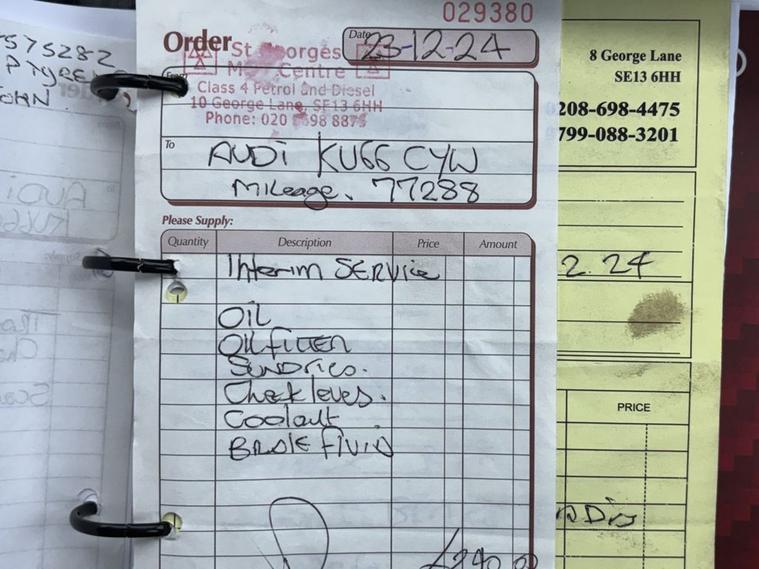 029380
Order
Date
23-12-24
St Georges
Centre
Class 4 Petrol and Diesel
10 George Lane, SE13 6HH
Phone: 020 8698 8875
To
AUDi KU66 CYW
Mileage. 77288
Please Supply:
Quantity Description Price Amount
Interim SERVice
OIL
OILFILTER
SUNDries.
Check leves.
Coolant
BRAKE FLUID
£240.0
575282
JOHN
8 George Lane
SE13 6HH
208-698-4475
799-088-3201
2.24
PRICE